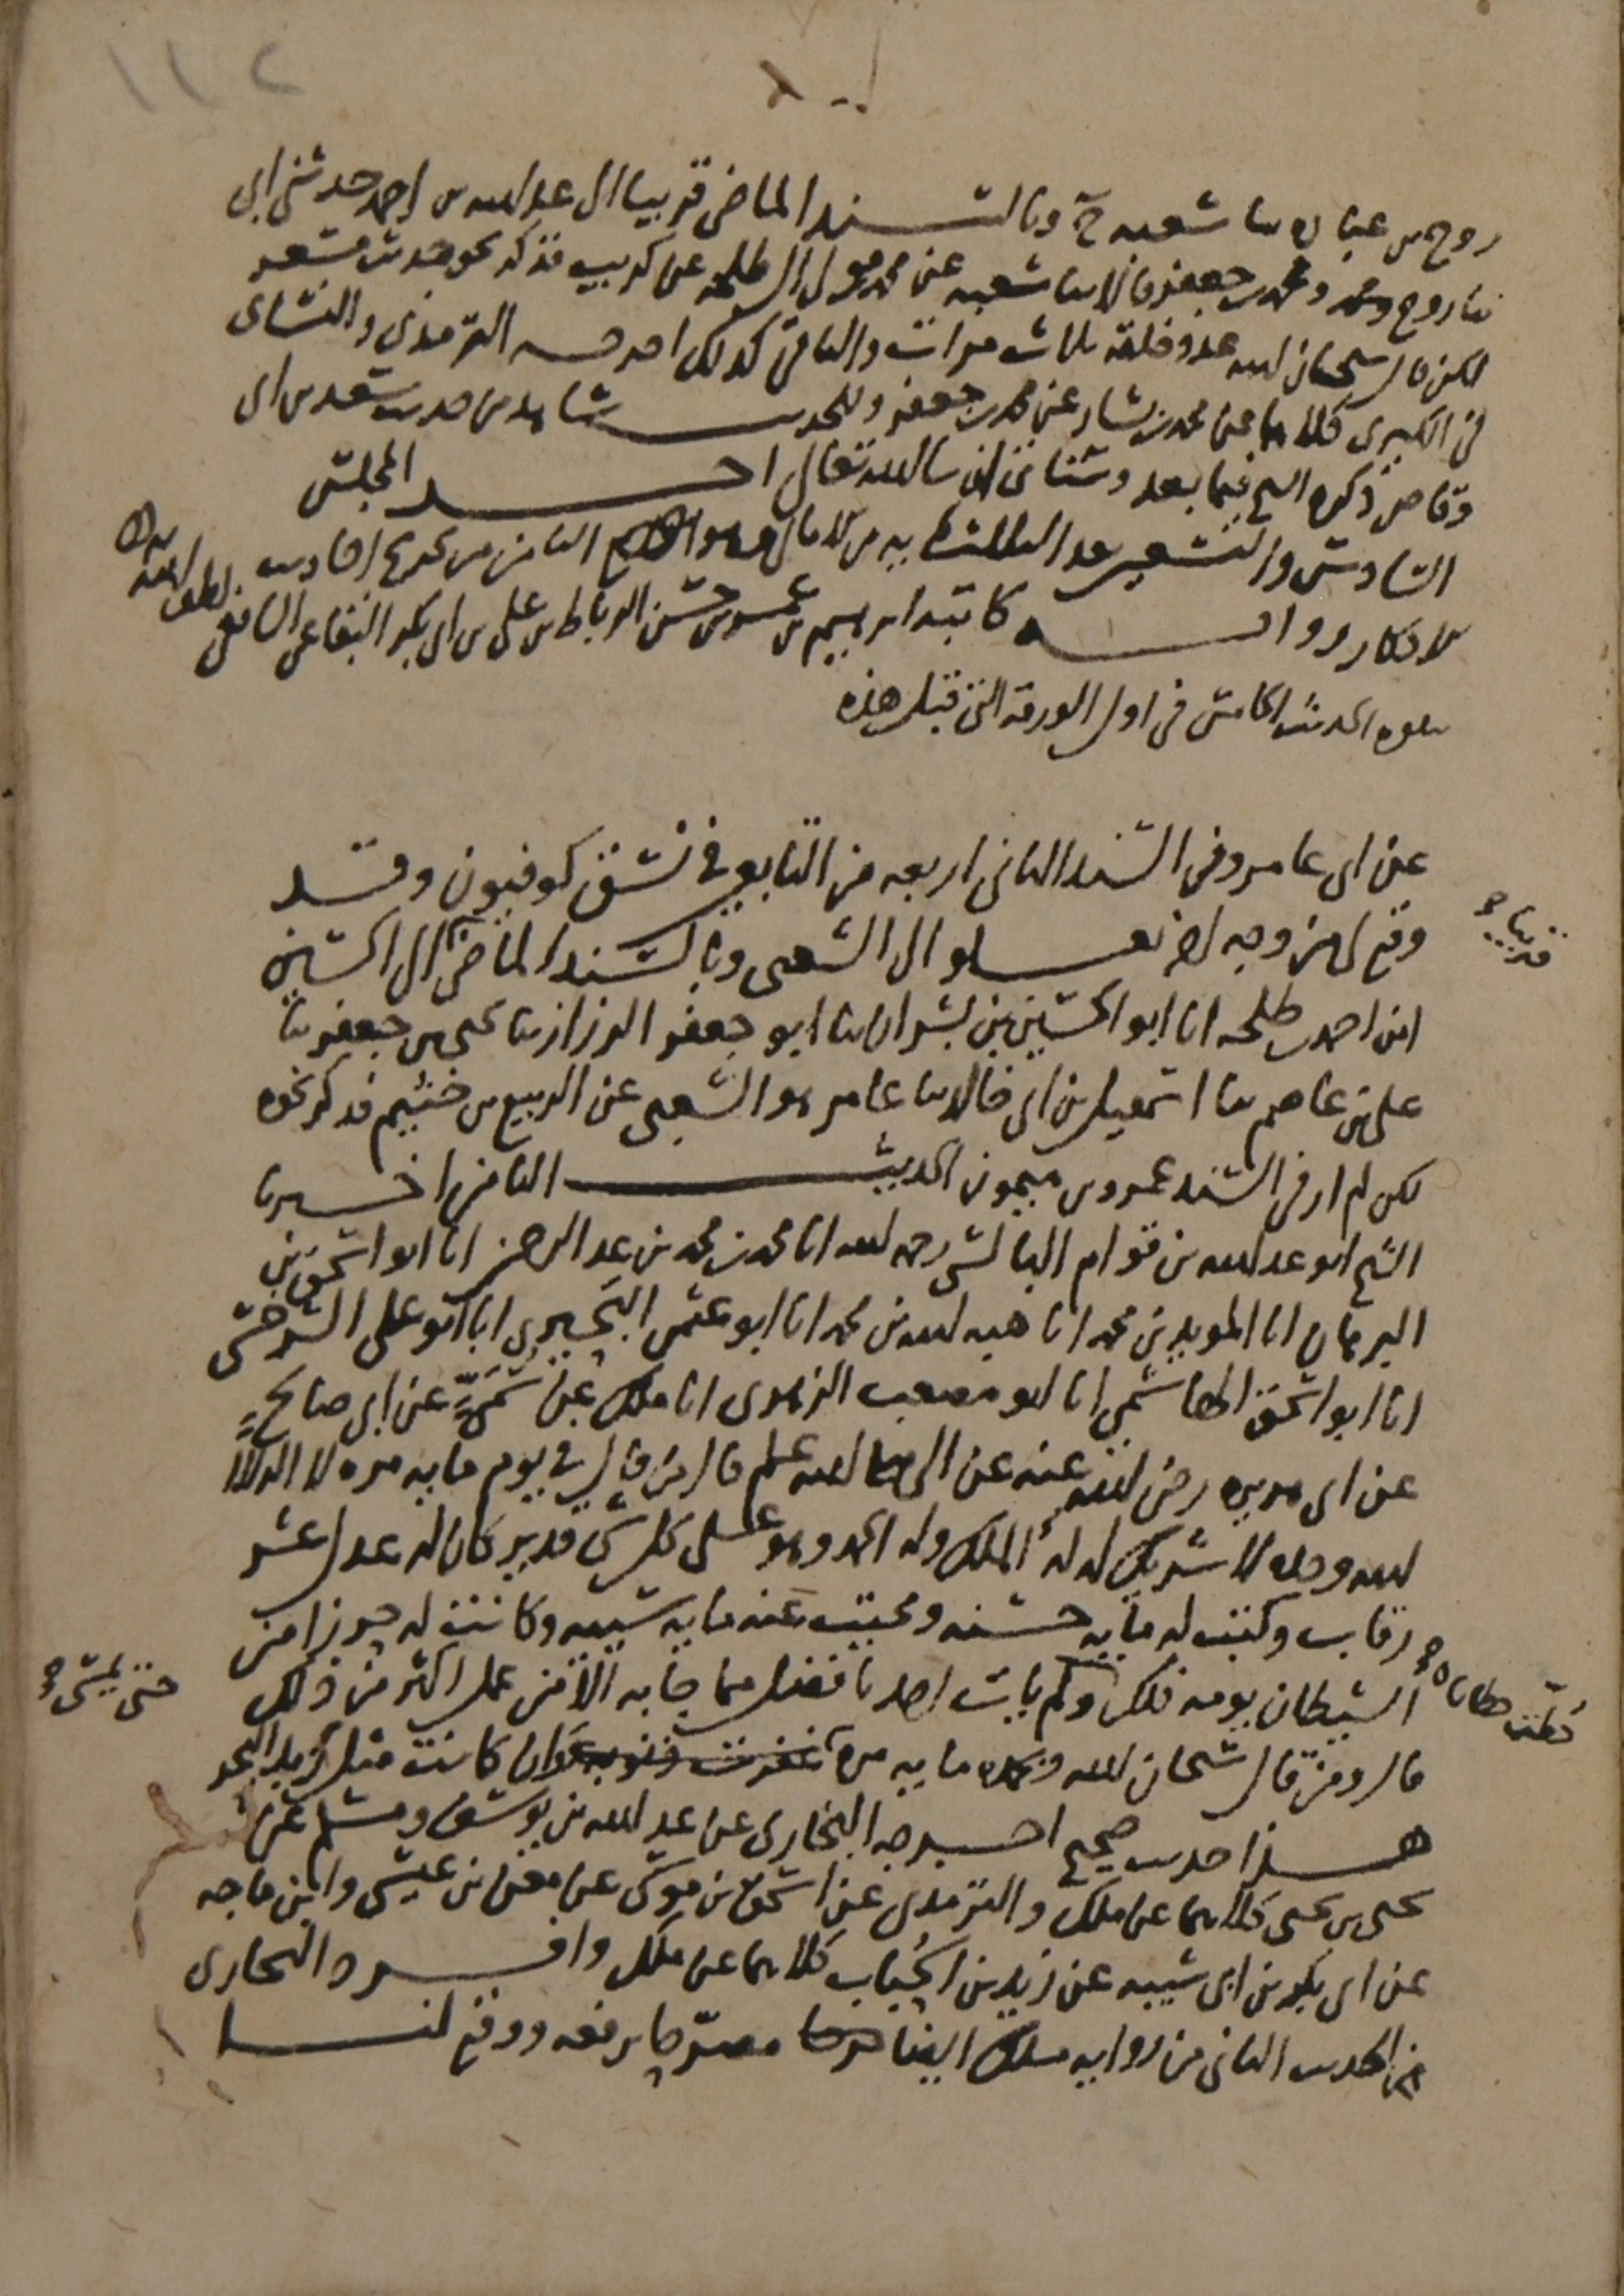 ١١٢
روح بن عباده ثنا شعبه ح وبالسند الماضى قريبا الى عبد الله بن احمد حدثنى ابى
ثنا روح ومحمد بن جعفر قالا ثنا شعبه عن محمد مولى ال طلحه عن كريب فذكر نحو حديث مسعر
لكن قال سبحان الله عدد خلقه ثلاث مرات والباقى كذلك اخرجه الترمذى والنساى
فى الكبرى كلاهما عن محمد بن بشار عن محمد بن جعفر وللحديث شاهد من حديث سعد بن ابى
وقاص ذكره الشيخ فيما بعد وسياتى ان شا الله تعالى اخر المجلس
السادس والتسعين بعد الثلثمايه من الامالى وهو الثامن من تخريج احاديث
الاذكار رواية كاتبه ابراهيم بن عمر بن حسن الرباط بن على بن ابى بكر البقاعى الشافعى لطف الله به
يتلوه الحديث الخامس فى اول الورقة التى قبل هذه
عن ابى عامر وفى السند الثانى اربعه من التابعين فى نسق كوفيون وقد
وقع لى من وجه اخر بعلو الى الشعبى وبالسند الماضى الى الحسين
قريبا صح
ابن احمد بن طلحه انا ابو الحسين بن بشران ثنا ابو جعفر الرزاز ثنا يحيى بن جعفر ثنا
على بن عاصم ثنا اسمعيل بن ابى خالد ثنا عامر هو الشعبى عن الربيع بن خثيم فذكر نحوه
لكن لم ار فى السند عمرو بن ميمون الحديث الثامن اخبرنا
الشيخ ابو عبد الله بن قوام البالسى رحمه الله انا محمد بن محمد بن عبد الرحمن انا ابو اسحق بن
البرهان انا المويد بن محمد انا هبه الله بن محمد انا ابو عثمن البحيرى انا ابو على السرخسى
انا ابو اسحق الهاشمى انا ابو مصعب الزهرى انا ملك عن سمى عن ابى صالح
عن ابى هريره رضى الله عنه عن النبى صلى الله عليه وسلم قال من قال فى يوم مايه مره لا اله الا
الله وحده لا شريك له له الملك وله الحمد وهو على كل شى قدير كان له عدل عشر
رقاب وكتبت له مايه حسنه ومحيت عنه مايه سييه وكانت له حرزا من
الشيطان يومه ذلك ولم يات احد بافضل مما جا به الا من عمل اكثر من ذلك
حتى يمسى صح
قال ومن قال سبحان الله وبحمده مايه مره غفرت ذنوبه وان كانت مثل زبد البحر
حطت خطاياه صح
هذا حديث صحيح اخرجه البخارى عن عبد الله بن يوسف ومسلم عن
يحيى بن يحيى كلاهما عن ملك والترمذى عن اسحق بن موسى عن معن بن عيسى وابن ماجه
عن ابى بكر بن ابى شيبه عن زيد بن الحباب كلاهما عن ملك وافرد البخارى
من الحديث الثانى من روايه ملك ايضا مصرحا برفعه ووقع لنا